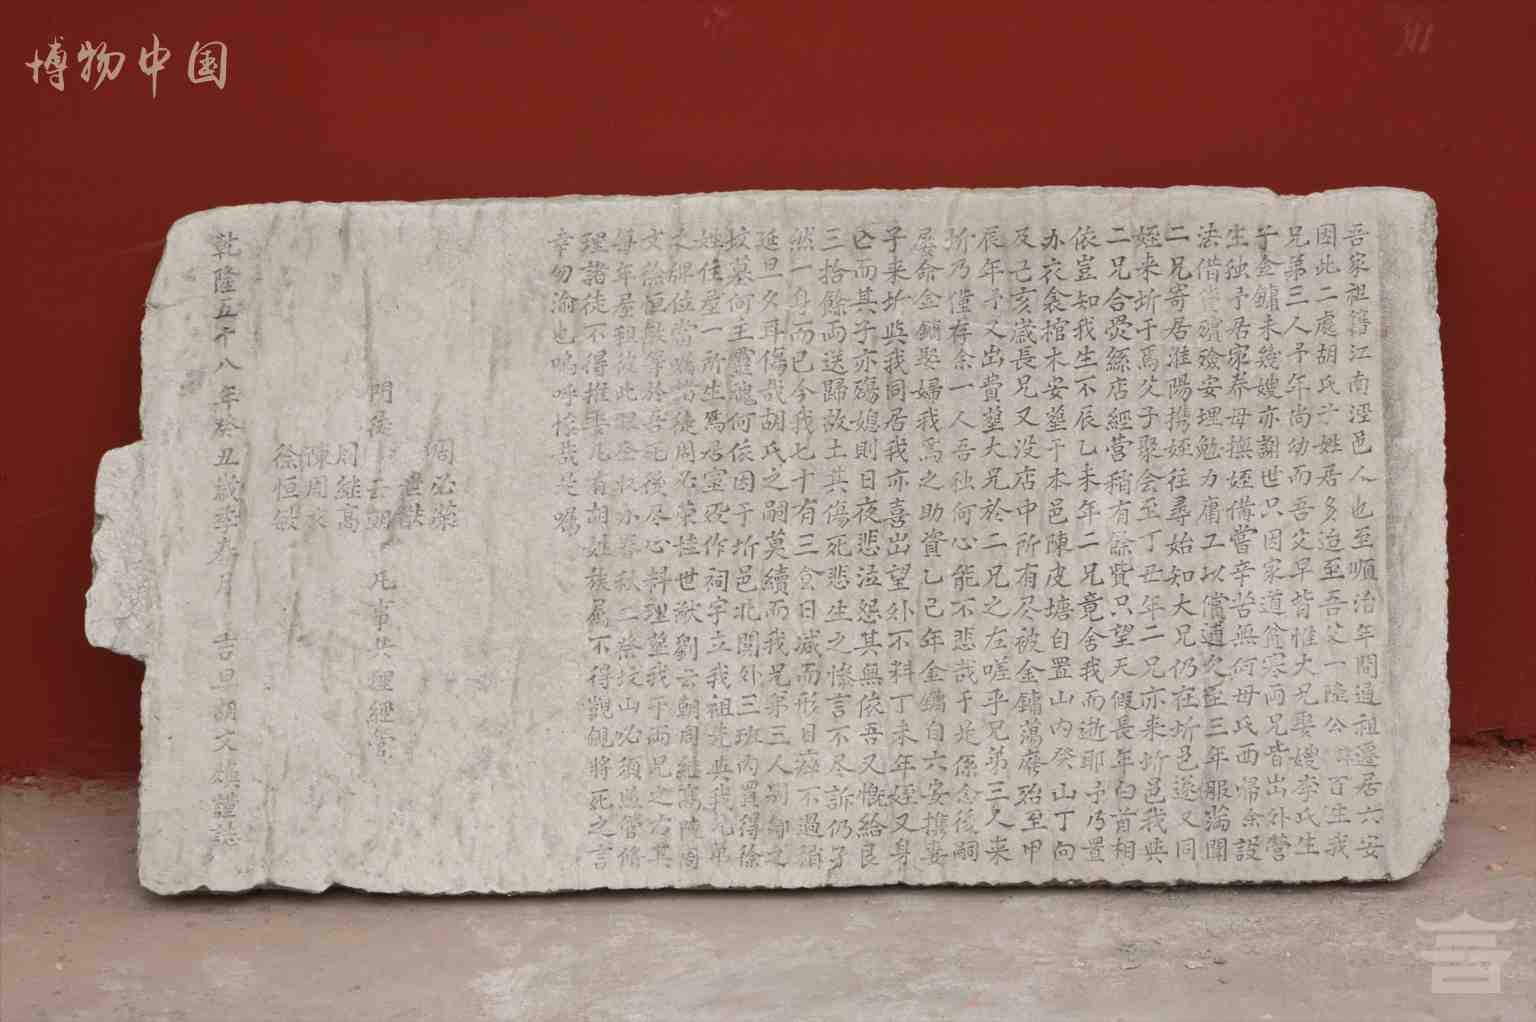 博物中国
吾家祖籍江南涇邑人也至順治年間遷祖遷居六安
因此二處胡氏才姓居多迨至吾父一隆公百生我
兄弟三人予年尚幼而吾父早皆惟大兄娶嫂李氏生
子金鏞未幾嫂亦謝世只因家道貧寒兩兄皆出外營
生独予居家奉母撫姪備嘗辛苦無何母氏西歸余設
法借殯殮安埋勉力庸工以償逋欠至三年服滿聞
二兄寄居淮陽携姪往尋始知大兄仍在圻邑遂又同
姪来圻于焉父子聚会至丁丑年二兄亦来圻邑我與
二兄合爂絲店經营稍有餘貲只望天假長年白首相
依豈知我生不辰乙未年二兄竟舍我而逝耶予乃置
办衣衾棺木安塟于本邑陳皮塘自置山内癸山丁向
及己亥歲長兄又没店中所有尽被金鏞蕩廢殆至甲
辰年予又出費塟大兄於二兄之左嗟乎兄弟三人来
圻乃僅存余一人吾独何心能不悲哉于是係念後嗣
屡命金鏞娶婦我爲之助資乙己年金鏞自六安携妻
子来圻與我同居我亦喜出望外不料丁未年姪又身
亡而其子亦殤媳則日夜悲泣怨其無依吾又慨給良
三拾餘両送歸故土其傷死悲生之惨言不尽訴仍孑
然一身而已今我七十有三食日减而形日瘁不過稍
延旦夕耳傷哉胡氏之嗣莫續而我兄弟三人别鄉之
坟墓何主靈魂何依因于圻邑北関外三班内置得徐
姓住屋一所生爲居室殁作祠宇立我祖先與我兄弟
之牌位當嘱諸徒周必荣桂世猷劉云朝周継高陳周
文徐恒敏等於吾死後尽心料理塟我于両兄之右其
每年屋租彼此眼仝收办春秋二祭坟山必須照管脩
理諸徒不得推委凡有胡姓族属不得覬覦將死之言
幸勿渝也嗚呼惨哉是嘱
周必荣
世猷
門徒 云朝 凡事共理經管
周継高
陳周文
徐恒敏
乾隆五十八年癸丑歲季春月 吉旦胡文謹誌